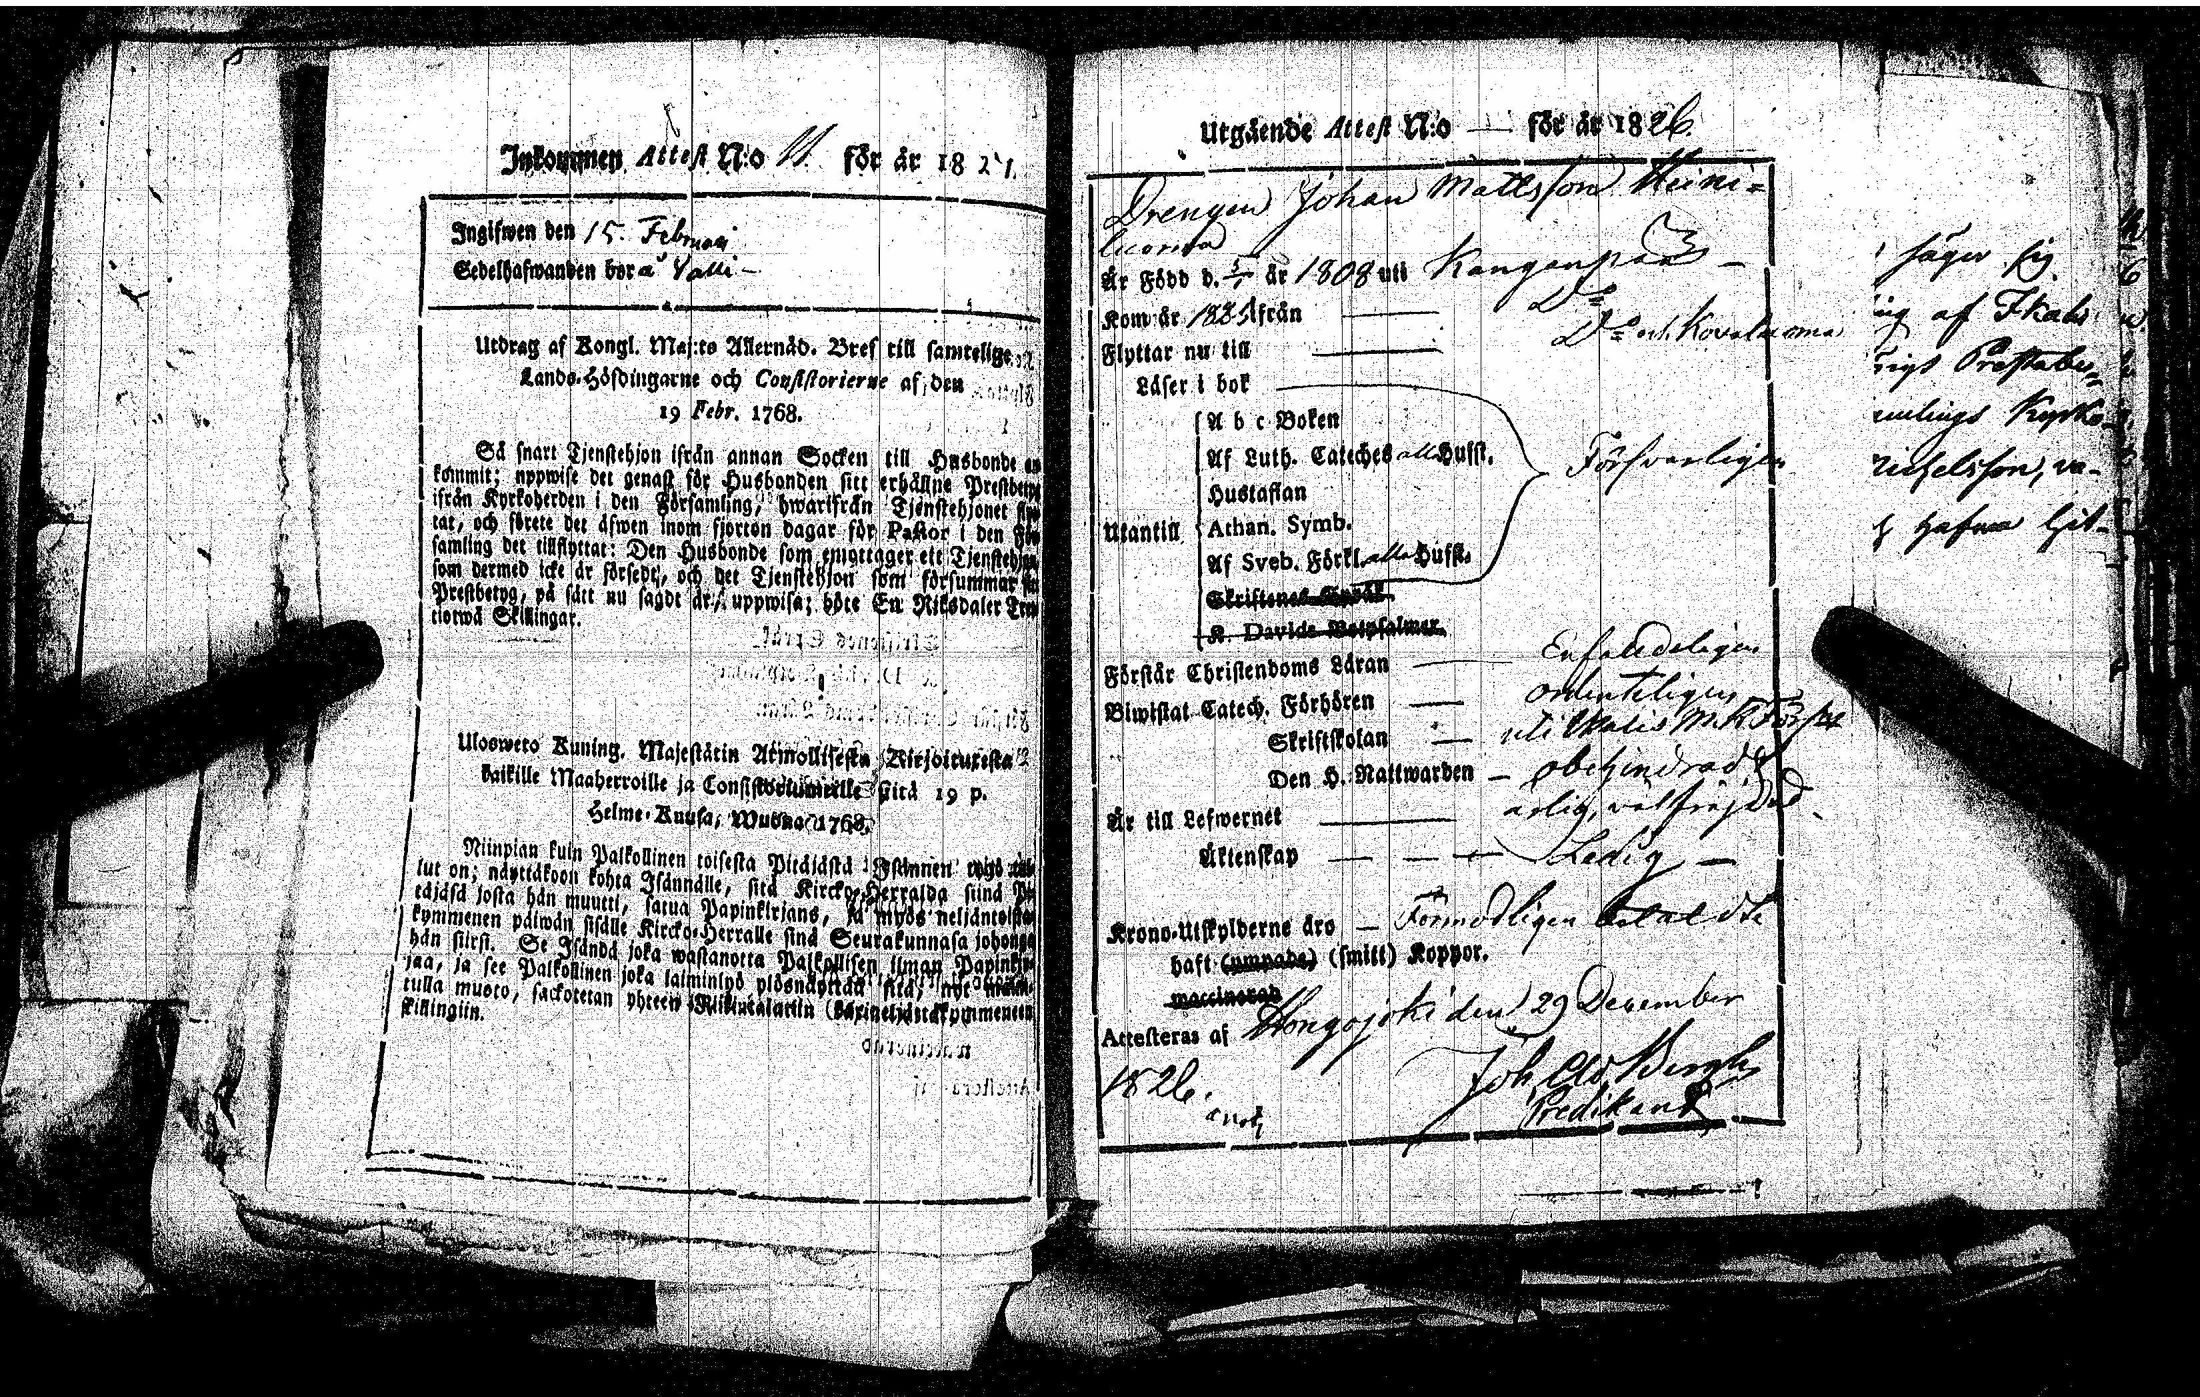 Inkommen Attest N:o 11. för år 1827.
Ingifwen den 15. Februari
Sedelhafwanden bor å Valli –
Utdrag af Kongl. Maj:ts Allernåd. Bref till samtelige
Lands-Höfdingarne och Consistorierne af den
19 Febr. 1768.
Så snart Tjenstehjon ifrån annan Socken till Husbonde
kommit; uppwise det genast för Husbonden sitt erhållne
ifrån Kyrkoherden i den Församling, hwarifrån Tjenstehjonet
tat, och förete det äfwen inom fjorton dagar för Pastor i den
samling det tillflyttat: Den Husbonde som emottager ett
som dermed icke är försedt, och det Tjenstehjon som försummar
Prestbetyg, på sätt nu sagdt är, uppwisa; böte En Riksdaler
tiotwå Skillingar.
Ulosweto Kuning. Majestätin Armollisesta Kirjoituxesta
kaikille Maaherroille ja Consistoriumeille sitä 19 p.
Helme-Kuusa, Wuona 1768.
Niinpian kuin Palkollinen toisesta Pitäjästä Isännen
lut on; näyttäköön kohta Isännälle, sitä Kircko-Herralda siinä
täjäsä josta hän muutti, saatua Papinkirjans, ja myös neljäntoista
kymmenen päiwän sisälle Kircko-Herralle sinä Seurakunnasa johonga
hän siirsi. Se Isändä joka wastanotta Palkollisen ilman
jaa, ja see Palkollinen joka laiminlyö ylösnäyttää sitä, nyt
tulla muoto, sackotetan yhteen Riikintalariin
skillingiin.
Utgående Attest N:o — för år 1826
Drengen Johan Mattsson Heini-
luoma
Är Född d. år 1808 uti Kanganpää –
Kom år 1825 från — Do
Flyttar nu till — Do och Kovaluoma
Läser i bok
A b c Boken
Af Luth. Cateches alla Hufst.
Hustaflan
Försvarligen
Utantill Athan. Symb.
Af Sveb. Förkl. alla Hufst.
Skriftenes Språk
K. Davids Botpsalmer.
Förstår Christendoms Läran — Enfaldeligen
Biwistat Catech. Förhören — ordenteligen
Skriftskolan — uti Ikalis M. K. Förs.
Den H. Nattwarden – obehindrad
Är till Lefwernet — ärlig, välfrejdad
Äktenskap — — — Ledig –
Krono-Utskylderne äro — Förmodligen betaldte
haft (ympade) (smitt) Koppor.
waccinerad
Attesteras af Hongojoki den 29 December
1826.
Joh Ad Bergh
Predikant
säger sig
af Ikalis
Prestabe-
Kyrko-